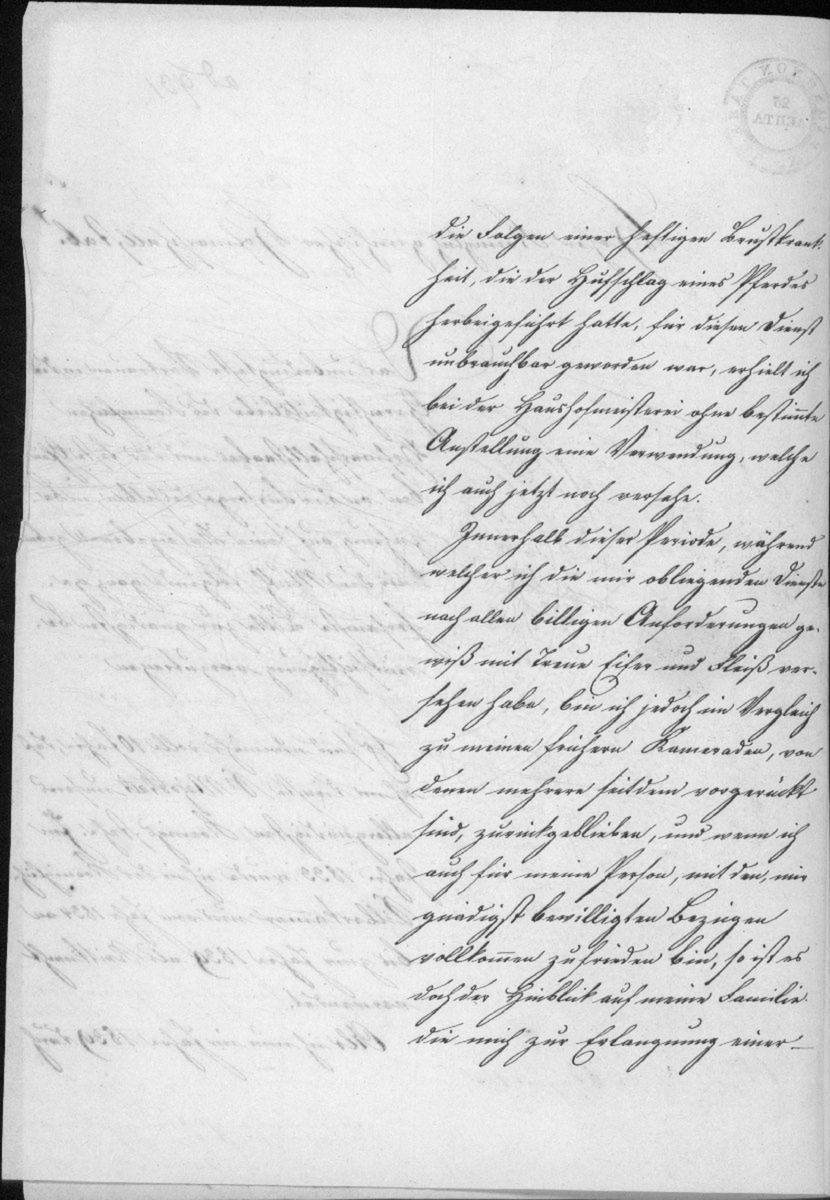 die Folgen einer heftigen Brustkrank-
heit, die der Hufschlag eines Pferdes
herbeigeführt hatte, für diesen Dienst
unbrauchbar geworden war, erhielt ich
bei der Haushofmeisterei ohne bestim̅te
Anstellung eine Verwendung, welche
ich auch jetzt noch versehe.
Innerhalb dieser Periode, während
welcher ich die mir obliegenden Dienste
nach allen billigen Anforderungen ge-
wiß mit Treue Eifer und Fleiß ver-
sehen habe, bin ich jedoch im Vergleich
zu meinen frühern Kameraden, von
denen mehrere seitdem vorgerückt
sind, zurückgeblieben, und wenn ich
auch für meine Person, mit den, mir
gnädigst bewilligten Bezügen
vollkom̅en zufrieden bin, so ist es
doch der Hinblick auf meine Familie
die mich zur Erlangung einer